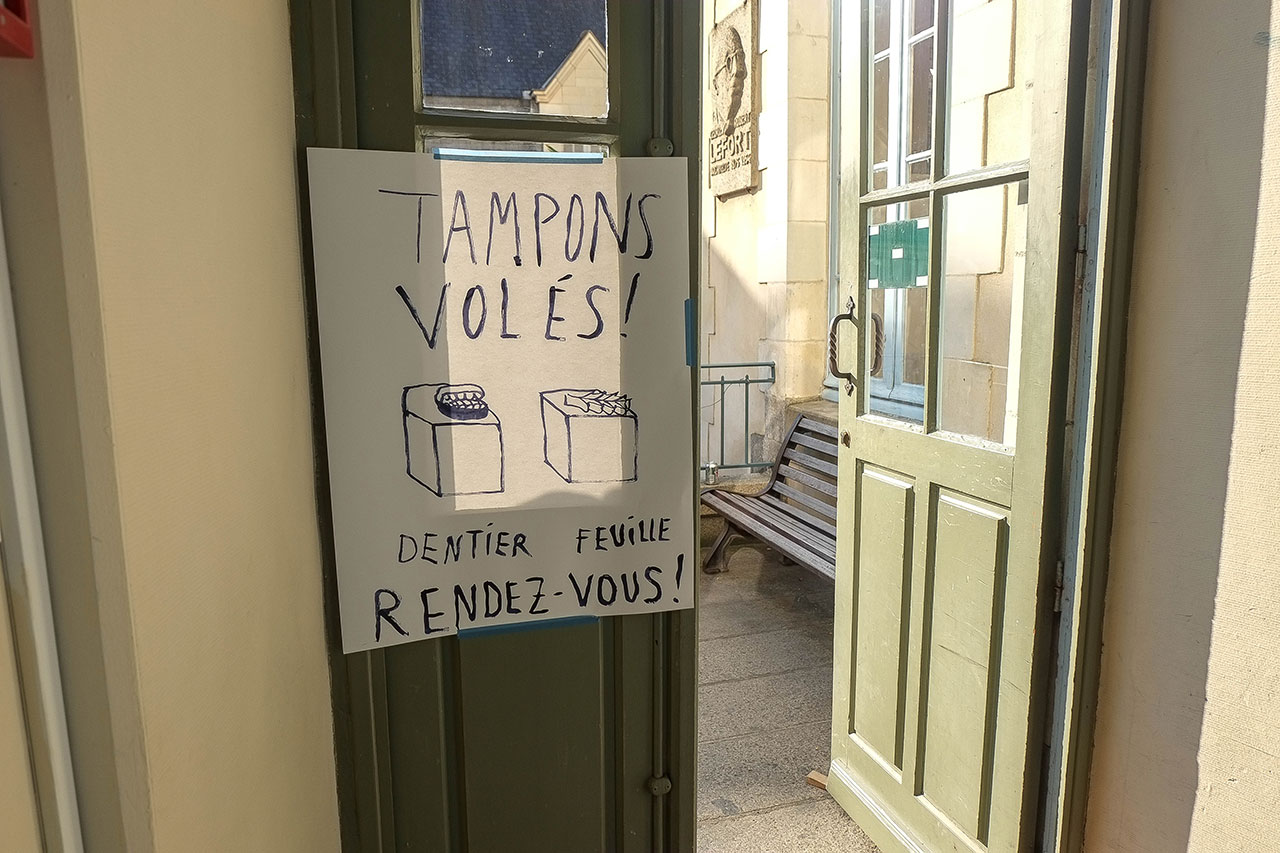 TAMPONS
VOLÉS!
DENTIER FEUILLE
RENDEZ-VOUS!
LEFORT